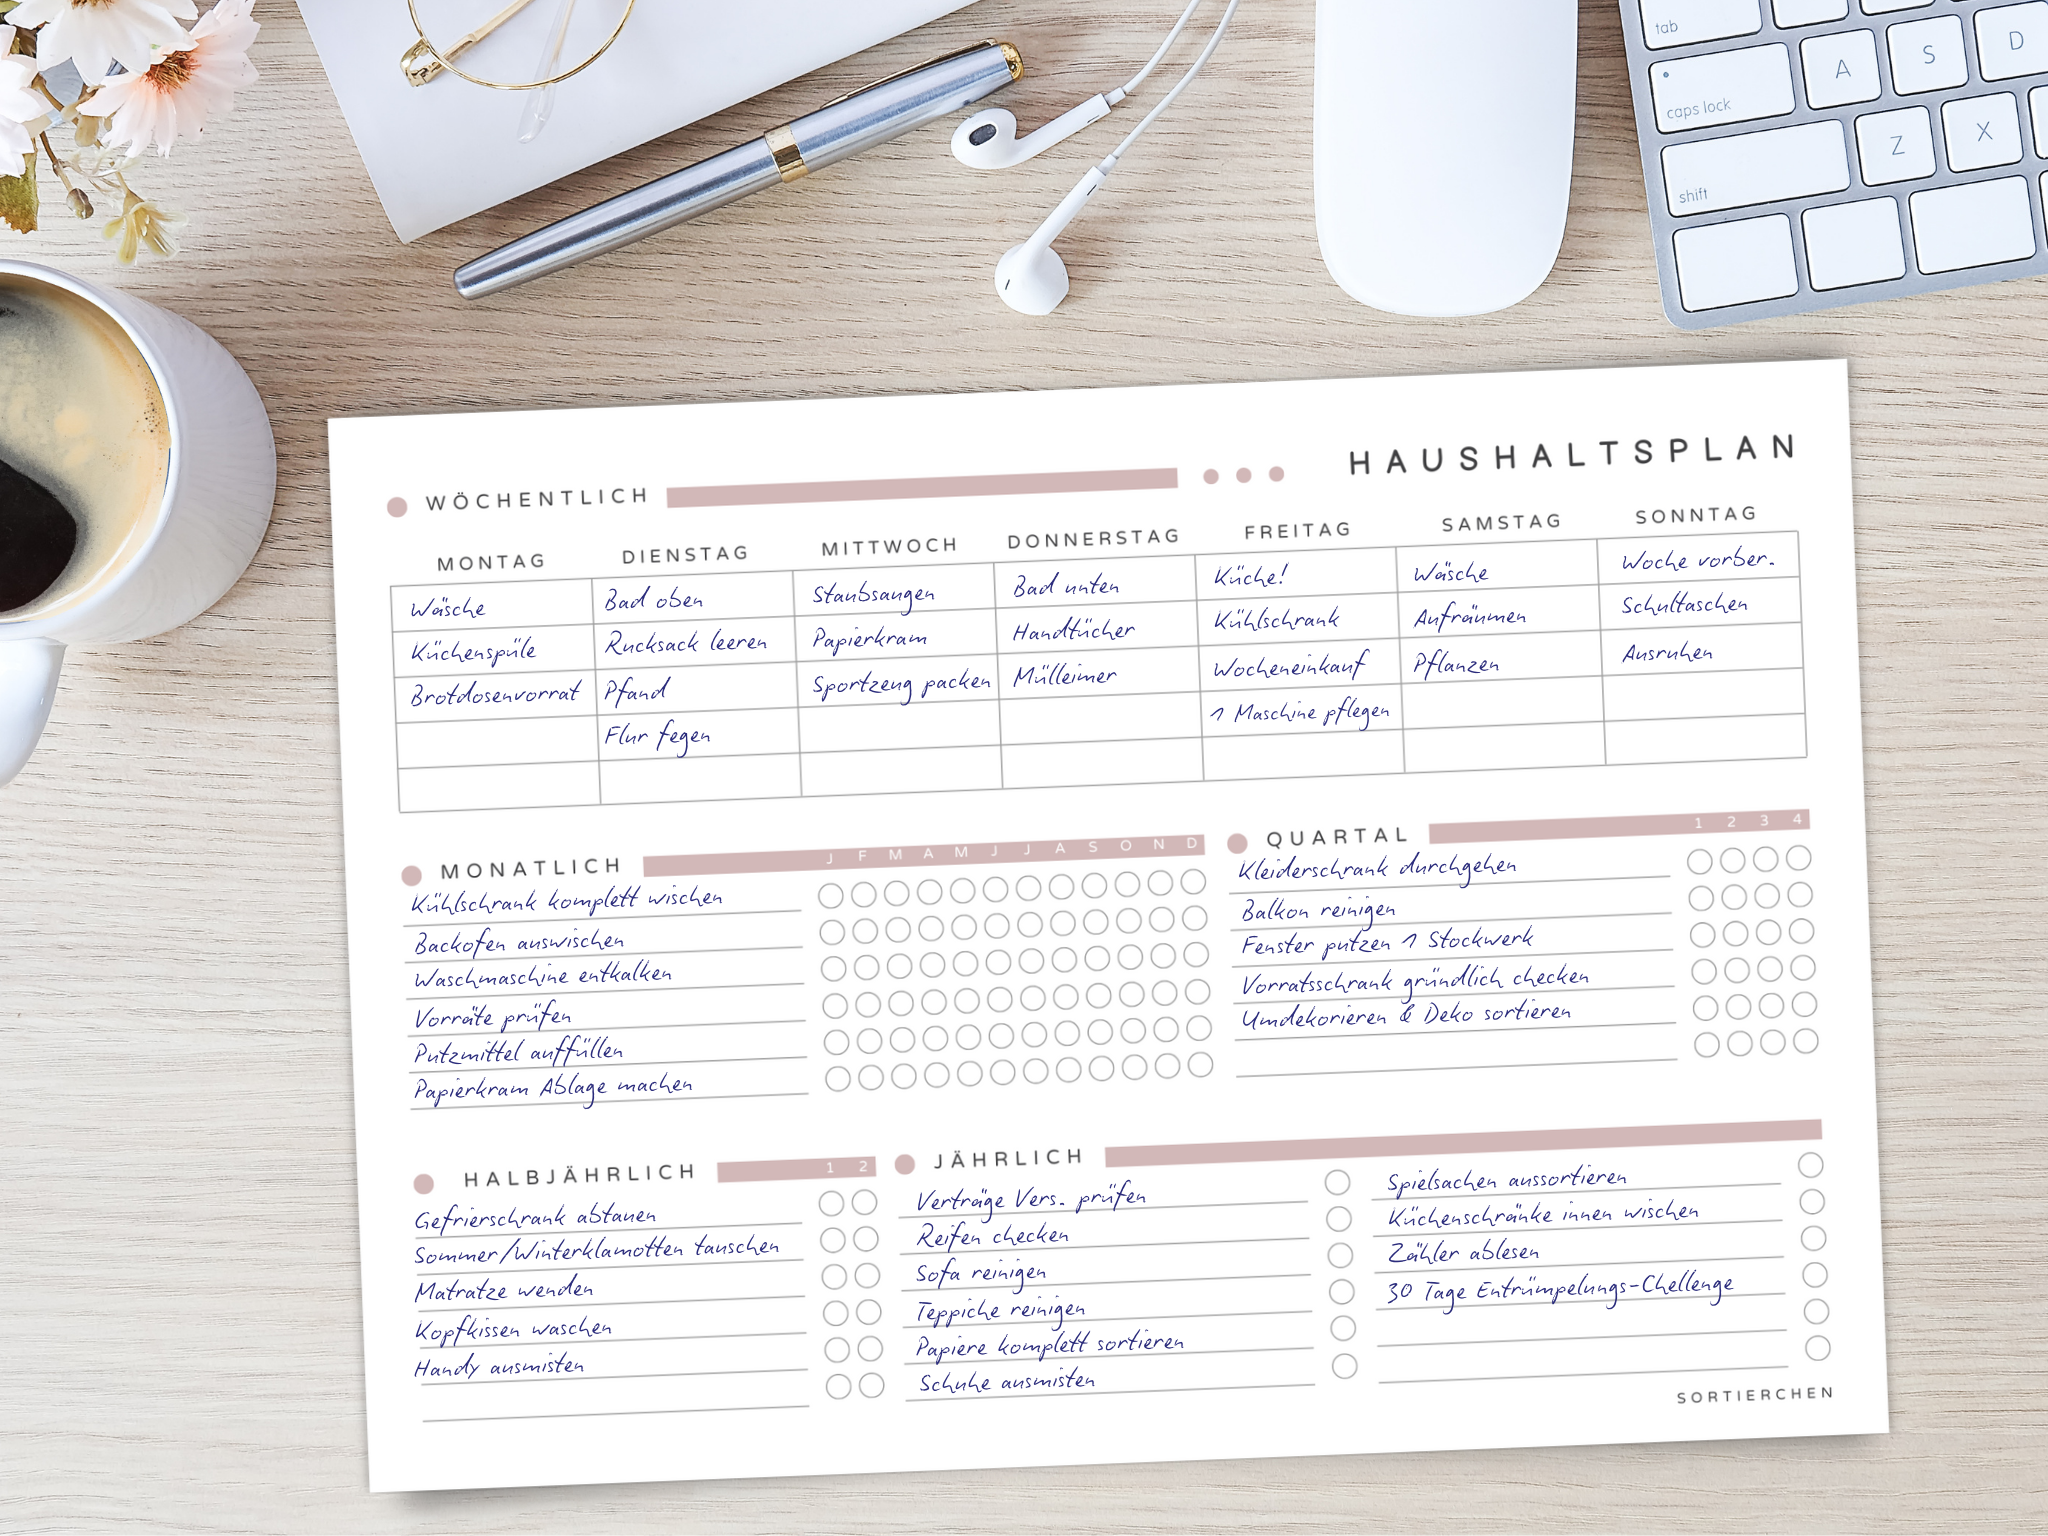 tab
A
S
D
caps lock
Z
X
shift
HAUSHALTSPLAN
WÖCHENTLICH
MONTAG DIENSTAG MITTWOCH DONNERSTAG FREITAG SAMSTAG SONNTAG
Wäsche Bad oben Staubsaugen Bad unten Küche! Wäsche Woche vorber.
Küchenspüle Rucksack leeren Papierkram Handtücher Kühlschrank Aufräumen Schultaschen
Brotdosenvorrat Pfand Sportzeug packen Mülleimer Wocheneinkauf Pflanzen Ausruhen
Flur fegen 1 Maschine pflegen
MONATLICH J F M A M J J A S O N D
Kühlschrank komplett wischen
Backofen auswischen
Waschmaschine entkalken
Vorräte prüfen
Putzmittel auffüllen
Papierkram Ablage machen
QUARTAL 1 2 3 4
Kleiderschrank durchgehen
Balkon reinigen
Fenster putzen 1 Stockwerk
Vorratsschrank gründlich checken
Umdekorieren & Deko sortieren
HALBJÄHRLICH 1 2
Gefrierschrank abtauen
Sommer/Winterklamotten tauschen
Matratze wenden
Kopfkissen waschen
Handy ausmisten
JÄHRLICH
Verträge Vers. prüfen
Reifen checken
Sofa reinigen
Teppiche reinigen
Papiere komplett sortieren
Schuhe ausmisten
Spielsachen aussortieren
Küchenschränke innen wischen
Zähler ablesen
30 Tage Entrümpelungs-Chellenge
SORTIERCHEN